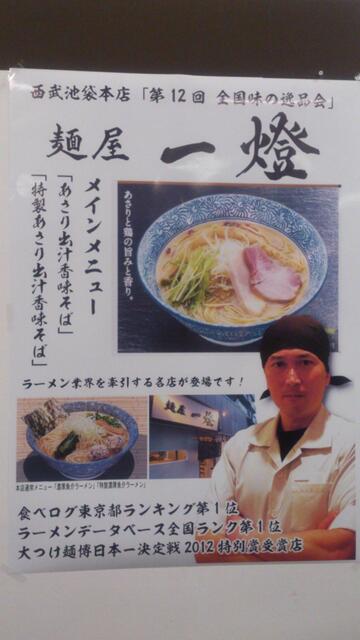 西武池袋本店「第12回 全国味の逸品会」
麺屋 一燈
メインメニュー
「あさり出汁香味そば」
「特製あさり出汁香味そば」
あさりと鶏の旨みと香り。
ラーメン業界を牽引する名店が登場です!
麺屋 一燈
本店通常メニュー「濃厚魚介ラーメン」「特製濃厚魚介ラーメン」
食べログ東京都ランキング第1位
ラーメンデータベース全国ランク第1位
大つけ麺博日本一決定戦2012特別賞受賞店